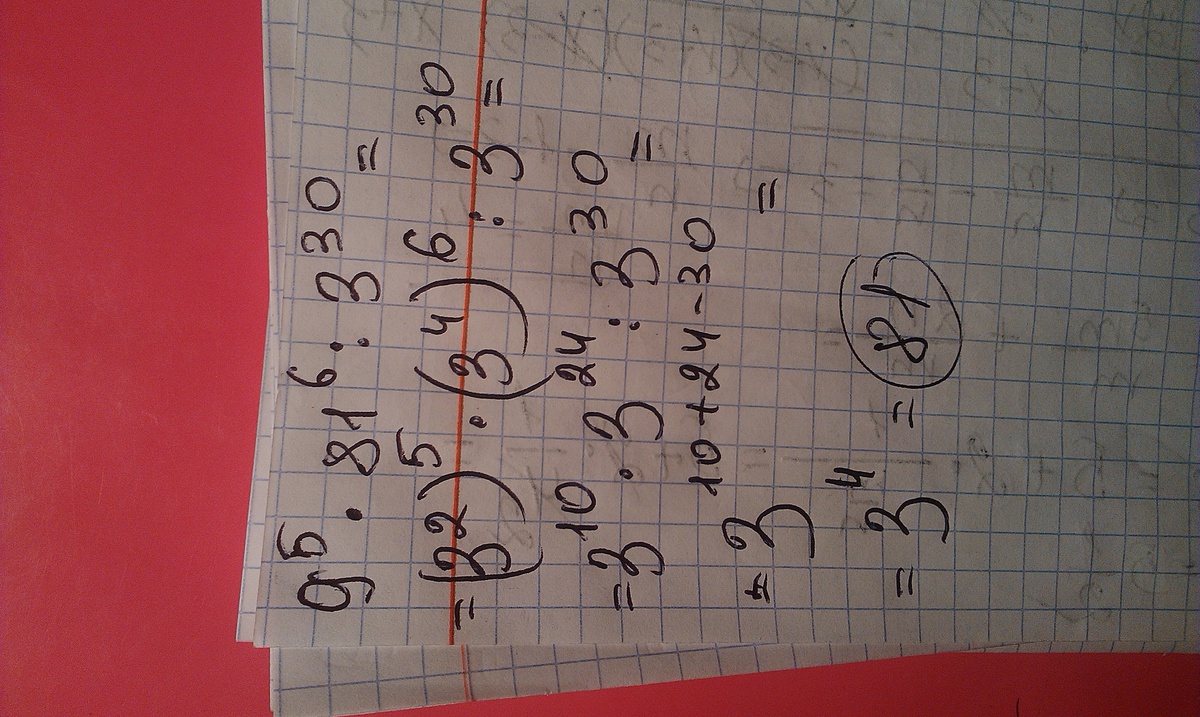 9⁵ · 81⁶ : 3³⁰ =
= (3²)⁵ · (3⁴)⁶ : 3³⁰ =
= 3¹⁰ · 3²⁴ : 3³⁰ =
= 3¹⁰⁺²⁴⁻³⁰ =
= 3⁴ = 81